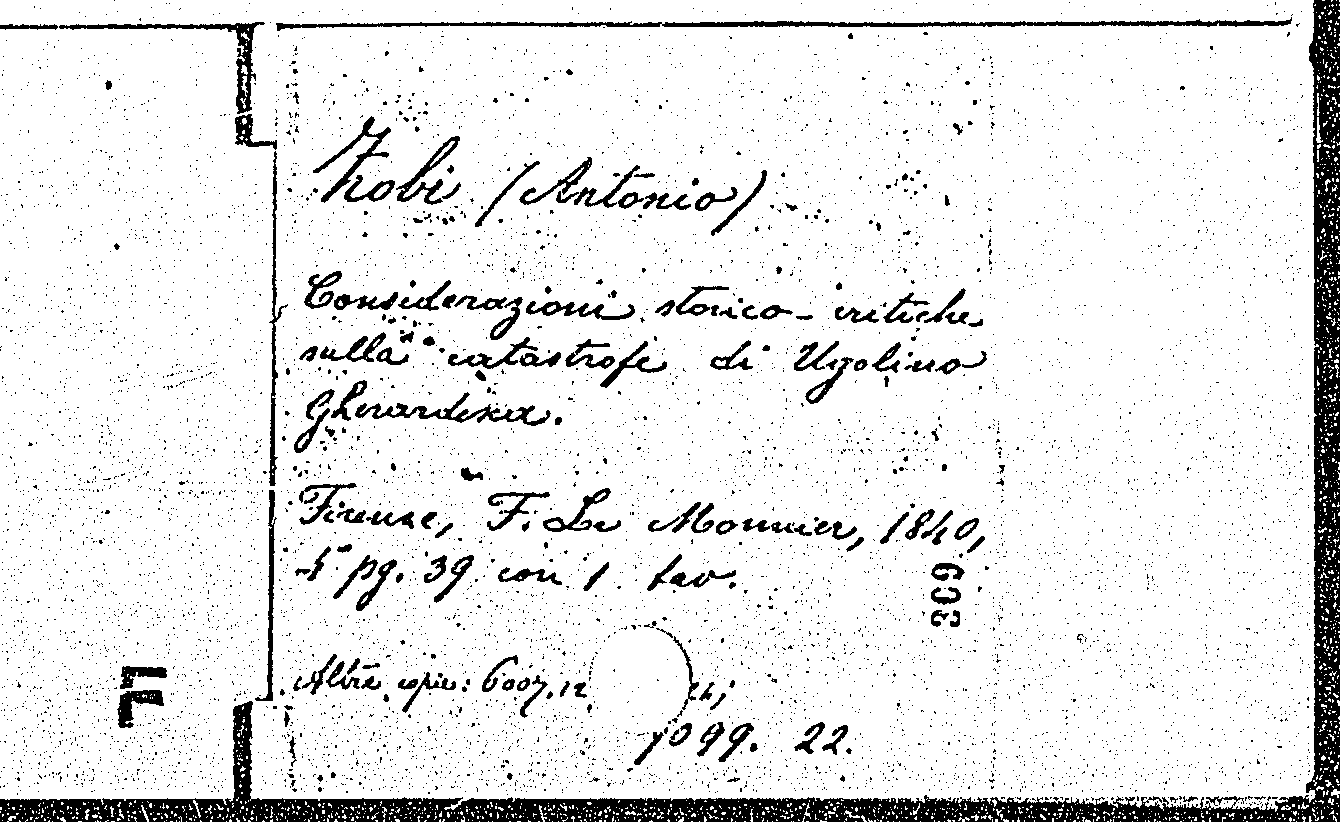 Zobi (Antonio)
Considerazioni storico-critiche
sulla catastrofe di Ugolino
Gherardesca.
Firenze, F. Le Monnier, 1840,
4° pg. 39 con 1 tav.
Altre copie: 6007.12
1099. 22.
309